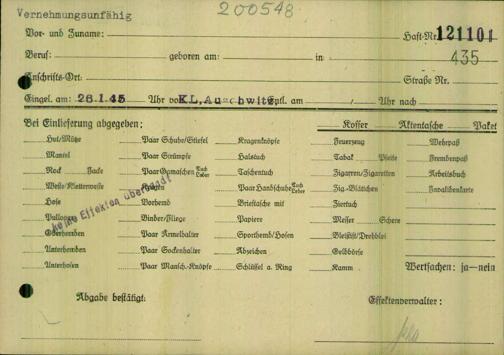 Vernehmungsunfähig 200548
Vor- und Zuname: Haft-Nr. 121101
Beruf: geboren am: in 435
Anschrifts-Ort: Straße Nr.
Eingel. am: 26.1.45 Uhr von KL.Auschwitz Entl. am Uhr nach
Bei Einlieferung abgegeben: Koffer Aktentasche Paket
Hut/Mütze Paar Schuhe/Stiefel Kragenknöpfe Feuerzeug Wehrpaß
Mantel Paar Strümpfe Halstuch Tabak Pfeife Fremdenpaß
Rock Jacke Paar Gamaschen Tuch Leder Taschentuch Zigarren/Zigaretten Arbeitsbuch
Weste/Kletterweste Kragen Paar Handschuhe Tuch Leder Zig.-Blättchen Invalidenkarte
Hose Vorhemd Brieftasche mit Ziertuch
Pullover Binder/Fliege Papiere Messer Schere
Oberhemden Paar Ärmelhalter Sporthemd/Hosen Bleistift/Drehblei
Unterhemden Paar Sockenhalter Abzeichen Geldbörse
Unterhosen Paar Mansch.-Knöpfe Schlüssel a. Ring Kamm Wertsachen: ja—nein
keine Effekten überbracht
Abgabe bestätigt: Effektenverwalter: